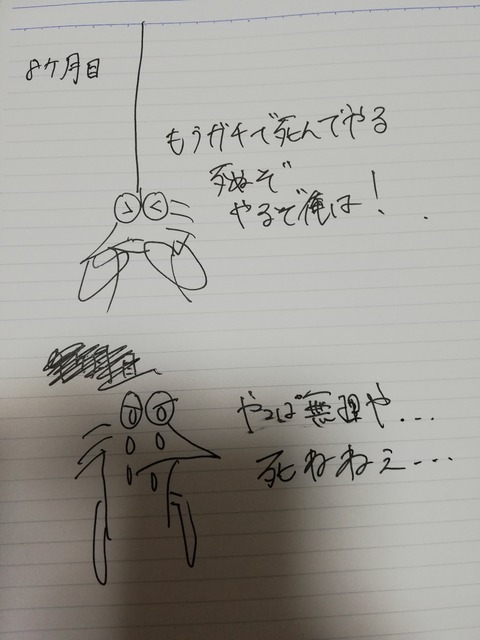 8ヶ月目
もうガチで死んでやる
死ぬぞ
やるぞ俺は!
やっぱ無理や...
死ねねぇ...